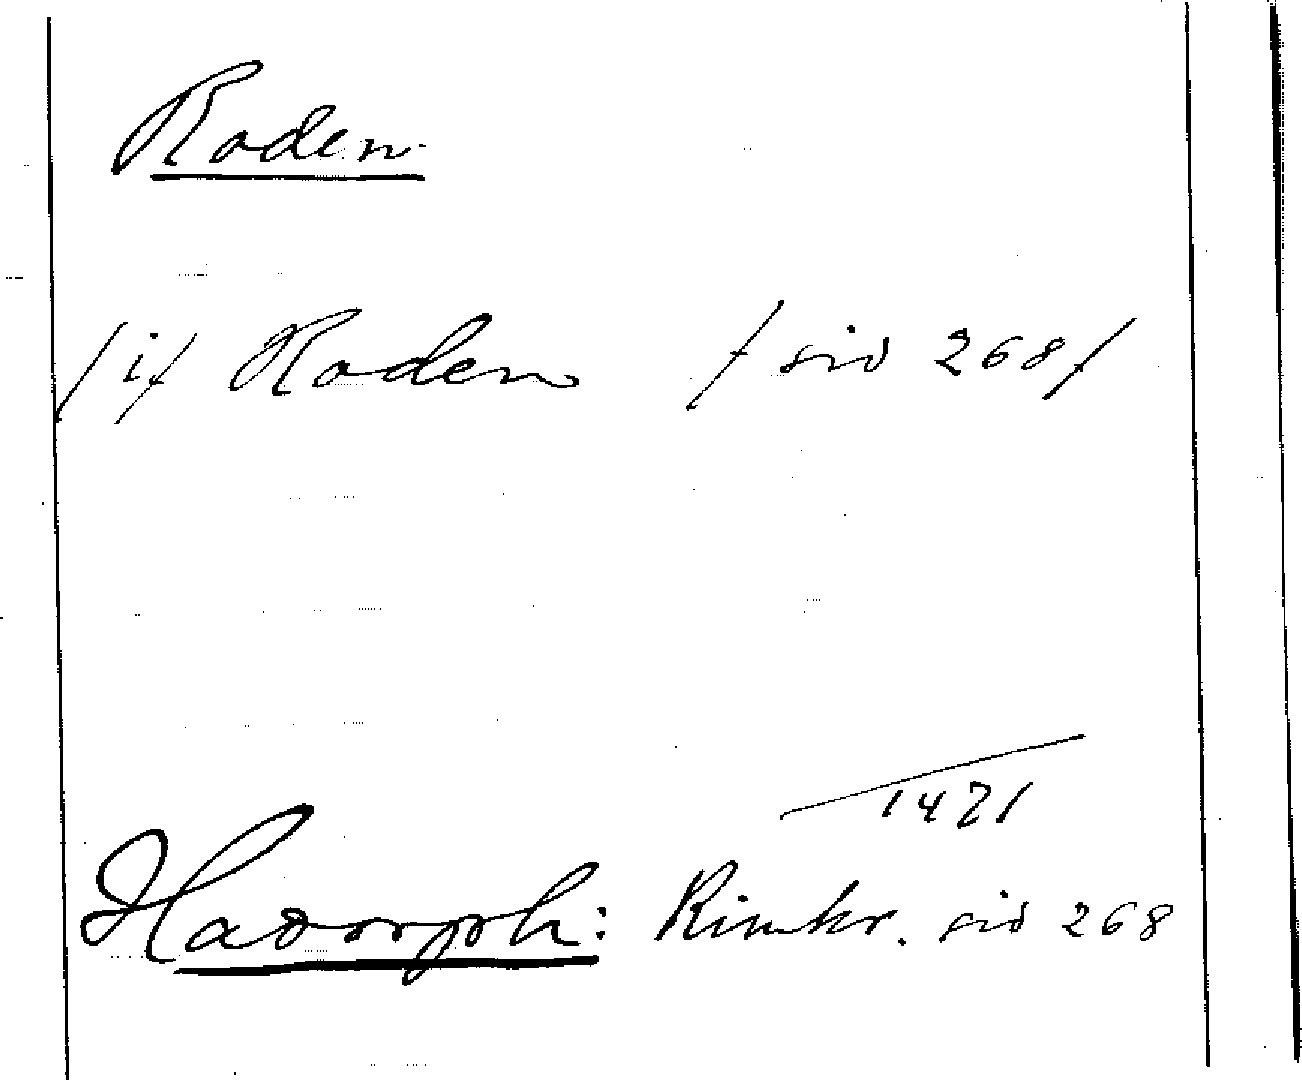 Roden
/i/ Roden / sid 268/
1471
Hadorph: Rimkr. sid 268